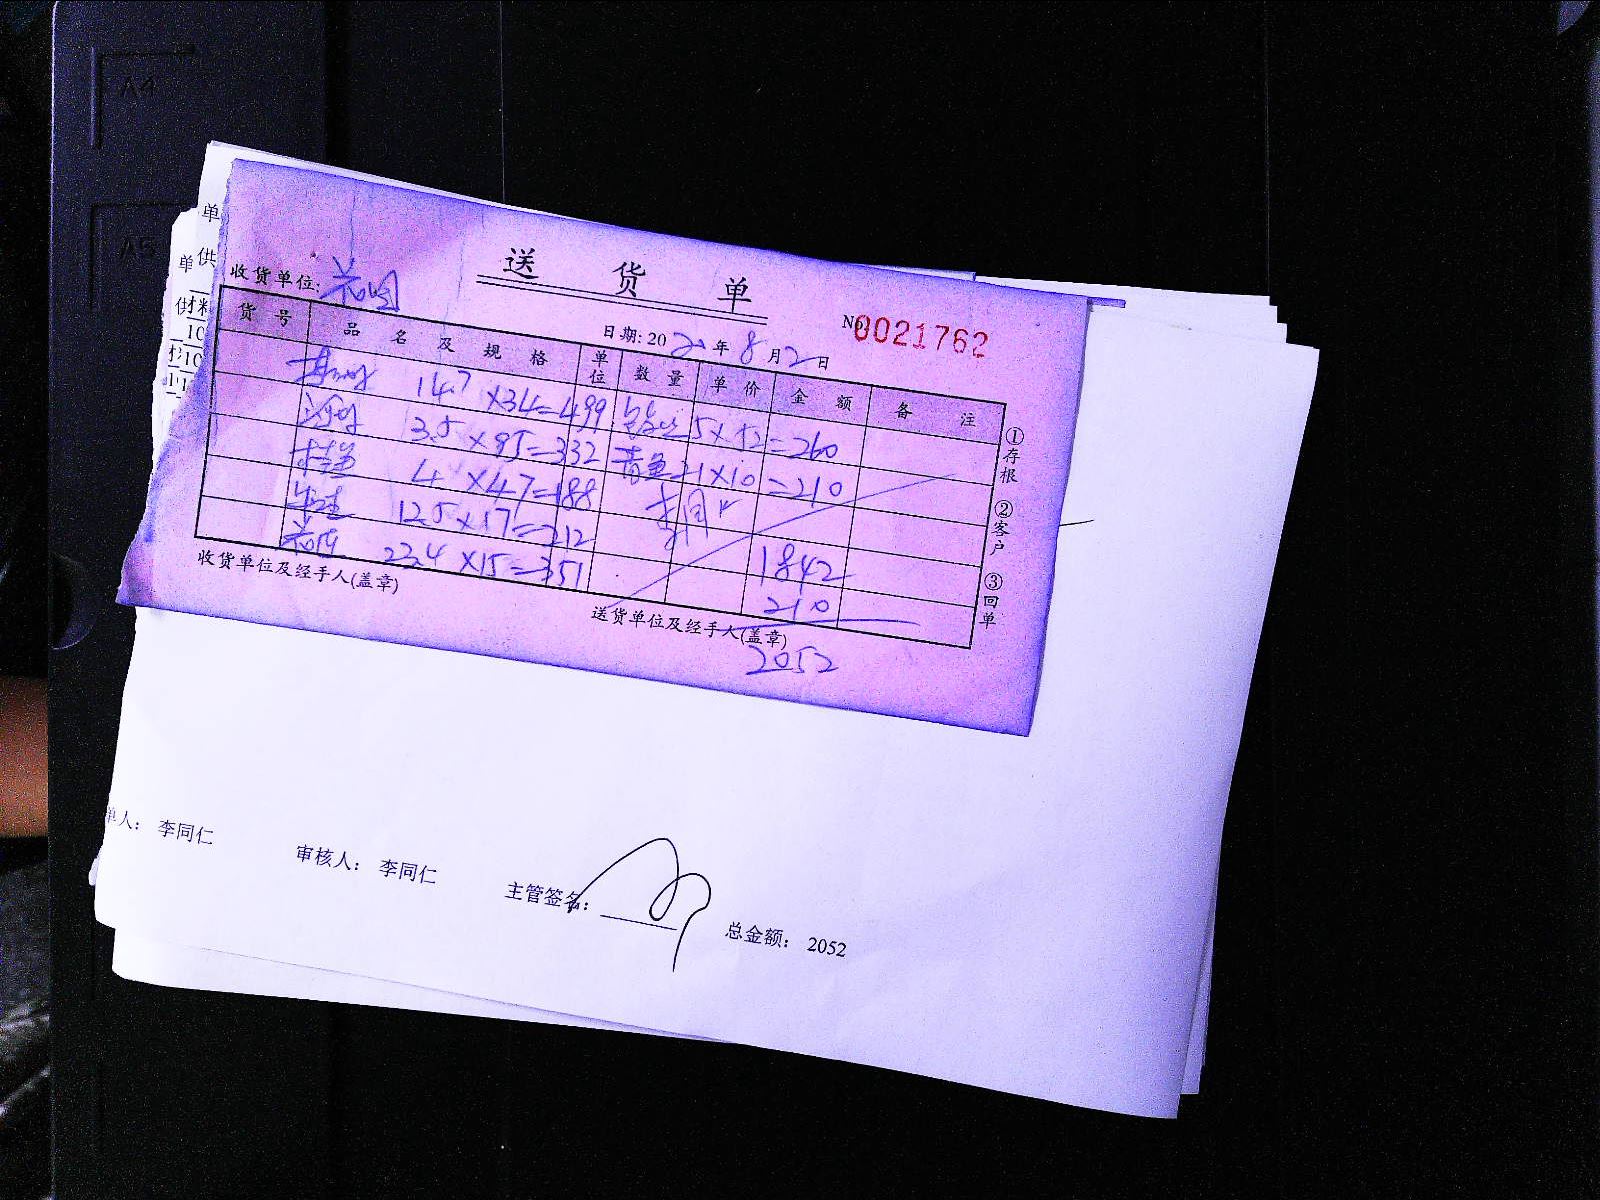 A4
A5
单
单 供
供 材料
送货单
收货单位:
No. 0021762
日期: 2020年8月2日
货号 品名及规格 单位 数量 单价 金额 备注
14.7 ×34=499 5×52=260
3.5 ×95=332 青鱼 21×10=210
4 ×47=188
12.5×17=212
23.4 ×15=351
1842
210
2052
①存根 ②客户 ③回单
收货单位及经手人(盖章)
送货单位及经手人(盖章)
单人: 李同仁
审核人: 李同仁
主管签名:
总金额: 2052